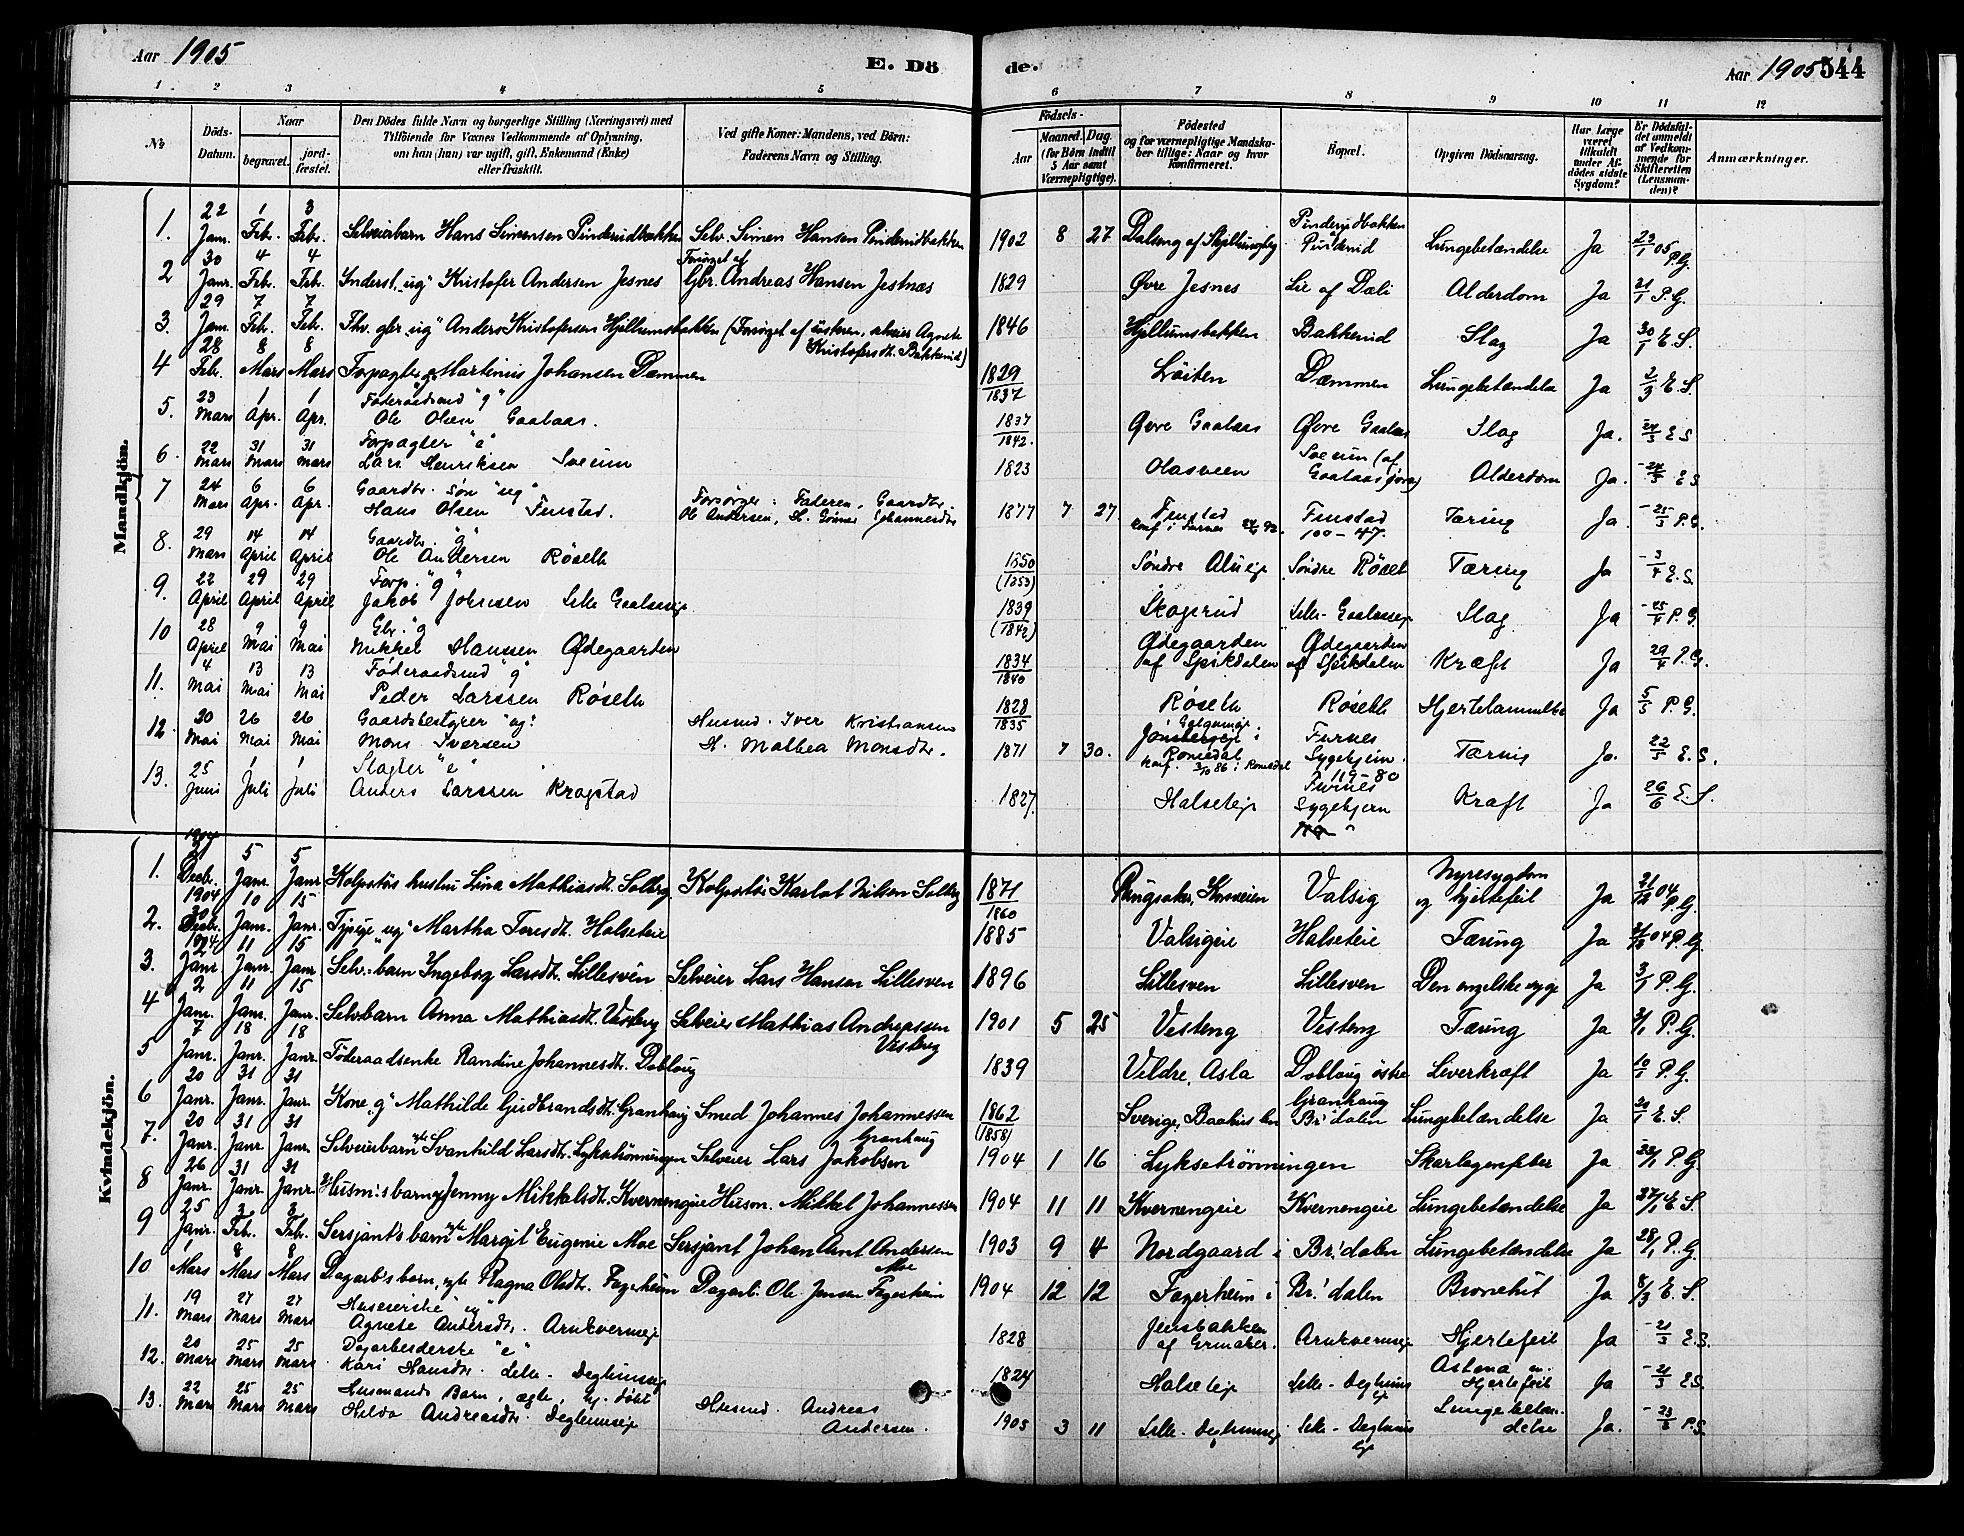 Aar 1905
E. Dö de.
Aar 1905 544
1 2 3 4 5 6 7 8 9 10 11 12
No
Döds-Datum.
Naar
begravet.
jord-fæstet.
Den Dödes fulde Navn og borgerlige Stilling (Næringsvei) med
Tilföiende for Voxnes Vedkommende af Oplysning,
om han (hun) var ugift, gift, Enkemand (Enke)
eller fraskilt.
Ved gifte Koner: Mandens, ved Börn:
Faderens Navn og Stilling.
Födsels-
Aar
Maaned. Dag.
(for Börn indtil
5 Aar samt
Værnepligtige).
Födested
og for værnepligtige Mandska-
ber tillige: Naar og hvor
konfirmeret.
Bopæl.
Opgiven Dödsaarsag.
Har Læge
været
tilkaldt
under Af-
dödes sidste
Sygdom?
Er Dödsfal-
det anmeldt
af Vedkom-
mende for
Skifteretten
(Lensman-
den)?
Anmærkninger.
Mandkjön.
1. 22 Janr. 1 Febr. 3 Febr. Selveierbarn Hans Simensen Pinderudbakken Selv. Simen Hansen Pinderudbakken 1902 8 27 Lungebetændelse Ja 23/1 05 P.G.
2 30 Janr. 4 Feb. 4 Feb. Inderst, "ug" Kristofer Andersen Jesnes Forsørget af Gbr. Andreas Hansen Jestnæs 1829 Øvre Jesnes Lie af Dæli Alderdom Ja 31/1 P.G.
3. 29 Janr. 7 Feb. 7 Feb. "ug" Anders Kristofersen Hjellumsbakken (Forsørget af søsteren, selveier Agnete Kristofersdt. Bakkerud) 1846 Hjellumsbakken Bakkerud Slag Ja 30/1 E.S.
4 28 Feb. 8 Mars 8 Mars Forpagter "g" Martinus Johansen Dæmmen 1829/1837 Løiten Dæmmen Lungebetændelse Ja 2/3 E.S.
5. 23 Mars 1 Apr. 1 Apr. Føderaadsmd "g" Ole Olsen Gaalaas. 1837/1842. Øvre Gaalaas Øvre Gaalaas Slag Ja. 24/3 E.S
6. 22 Mars 31 Mars 31 Mars Forpagter "e" Lars Henriksen Sveum 1823 Olasveen Sveum (af Gaalaas øvre) Alderdom Ja. 24/3 E.S
7 24 Mars 6 Apr. 6 Apr. Gaardbr. Søn "ug" Hans Olsen Finstad. Forsørger: Faderen, Gaardbr. Ole Andersen, H. 1877 7 27 Finstad konf. i Furnes Finstad 100-47. Tæring Ja. 25/3 P.G.
8. 29 Mars 14 April 14 April Gaardbr. "g" Ole Andersen Røseth 1850 (1853) Søndre Aluseje Søndre Røset Tæring Ja 3/4 E.S.
9. 22 April 29 April 29 April Forp. "g" Jakob Johnsen Lille Gaalaaseje 1839 (1842) Skogsrud Lille-Gaalaaseje Slag Ja 25/4 P.G.
10 28 April 9 Mai 9 Mai Gbr. "g" Mikkel Hanssen Ødegaarden 1834/1840 Ødegaarden af Spikdalen Ødegaarden af Spikdalen Kræft Ja 29/4 P.G.
11. 4 Mai 13 Mai 13 Mai Føderaadsmd "g" Peder Larssen Røseth 1828/1835 Røseth Røseth Hjertelammelse Ja 5/5 P.G.
12. 20 Mai 26 Mai 26 Mai Gaardsbestyrer "ug" Mons Iversen Husmd. Iver Kristiansen H. Mathea Monsdtr. 1871 7 30. i Romedal konf. 3/10 86 i Romedal Furnes Sygehjem. 119-80 Tæring Ja. 22/5 E.S.
13. 25 Juni 1 Juli 1 Juli Slagter "e" Anders Larssen Kragstad 1827. Halseteje Furnes Sygehjem Kræft Ja 26/6 E.S.
Kvindekjön.
1. 1904 Decb. 5 Janr. 5 Janr. Kolportørs hustru Lina Mathiasdt. Solberg. Kolportør Karlot Nilsen Solberg 1871/1860 Ringsaker, Valsig Nyresygdom og hjertefeil Ja 31/12 04 P.G.
2. 1904 30 Decb. 10 Janr. 15 Janr. "ug" Martha Toresdt. Halseteie 1885 Valsigeie Halseteie Tæring Ja 31/12 04 P.G.
3. Janr. 11 Janr. 15 Janr. Selv.-barn Ingeborg Larsdt. Lillesvén Selveier Lars Hansen Lillesven 1896 Lillesven Lillesven Den engelske syge Ja 3/1 P.G.
4 2 Janr. 11 Janr. 15 Janr. Selv.barn Anna Mathiasdt. Vesteng Selveier Mathias Andreassen Vesteng 1901 5 25 Vesteng Vesteng Tæring Ja 3/1 P.G.
5 7 Janr. 18 Janr. 18 Janr. Føderaadsenke Randine Johannesdt. Dobloug 1839 Veldre, Asla Dobloug østre Leverkræft Ja 10/1 P.G.
6 20 Janr. 31 Janr. 31 Janr. Kone "g" Mathilde Gudbrandsdt. Granhaug Smed Johannes Johannessen Granhaug 1862 (1858) Sverige, Baahus len Granhaug Br.'dalen Lungebetændelse Ja 20/1 E.S.
7. 20 Janr. 31 Janr. 31 Janr. Selveierbarn Svanhild Larsdt. Lyksetrønningen Selveier Lars Jakobsen 1904 1 16 Lyksetrønningen Skarlagenfeber Ja 23/1 P.G.
8 26 Janr. 31 Janr. 31 Janr. Husm.'s barn Jenny Mikkelsdt. Kvernengeie Husm. Mikkel Johannessen 1904 11 11 Kvernengeie Kvernengeie Lungebetændelse Ja 27/1 E.S.
9 25 Janr. 3 Feb. 3 Feb. Sersjant's barn Margit Eugenie Moe Sersjant Johan Arnt Andersen Moe 1903 9 4 Nordgaard i Br.'dalen Lungebetændelse Ja 28/1 P.G.
10 1 Mars 8 Mars 8 Mars Dagarb's barn, Ragna Olsdt. Fagerheim Dagarb. Ole Jensen Fagerheim 1904 12 12 Fagerheim i Br.'dalen Bronchit Ja 8/3 E.S.
11. 19 Mars 27 Mars 27 Mars "ug" Agnete Andersdt. Arnkverneje 1828 Jensbakken af Grimaker. Arnkverneje Hjertefeil Ja 21/3 E.S.
12. 20 Mars 25 Mars 25 Mars Dagarbeiderske "e" Kari Hansdtr. Lille-Deglumseje 1824 Halseteje Lille-Deglumseje Astma m. Hjertefeil Ja 21/3 E.S.
13. 22 Mars 25 Mars 25 Mars Husmands Barn, ægte, hj. døbt Hilda Andreasdtr. Deglumseje Husmd. Andreas Andersen. 1905 3 11 Lille-Deglumseje Lille-Deglumseje Lungebetændelse Ja. 23/3 P.G.